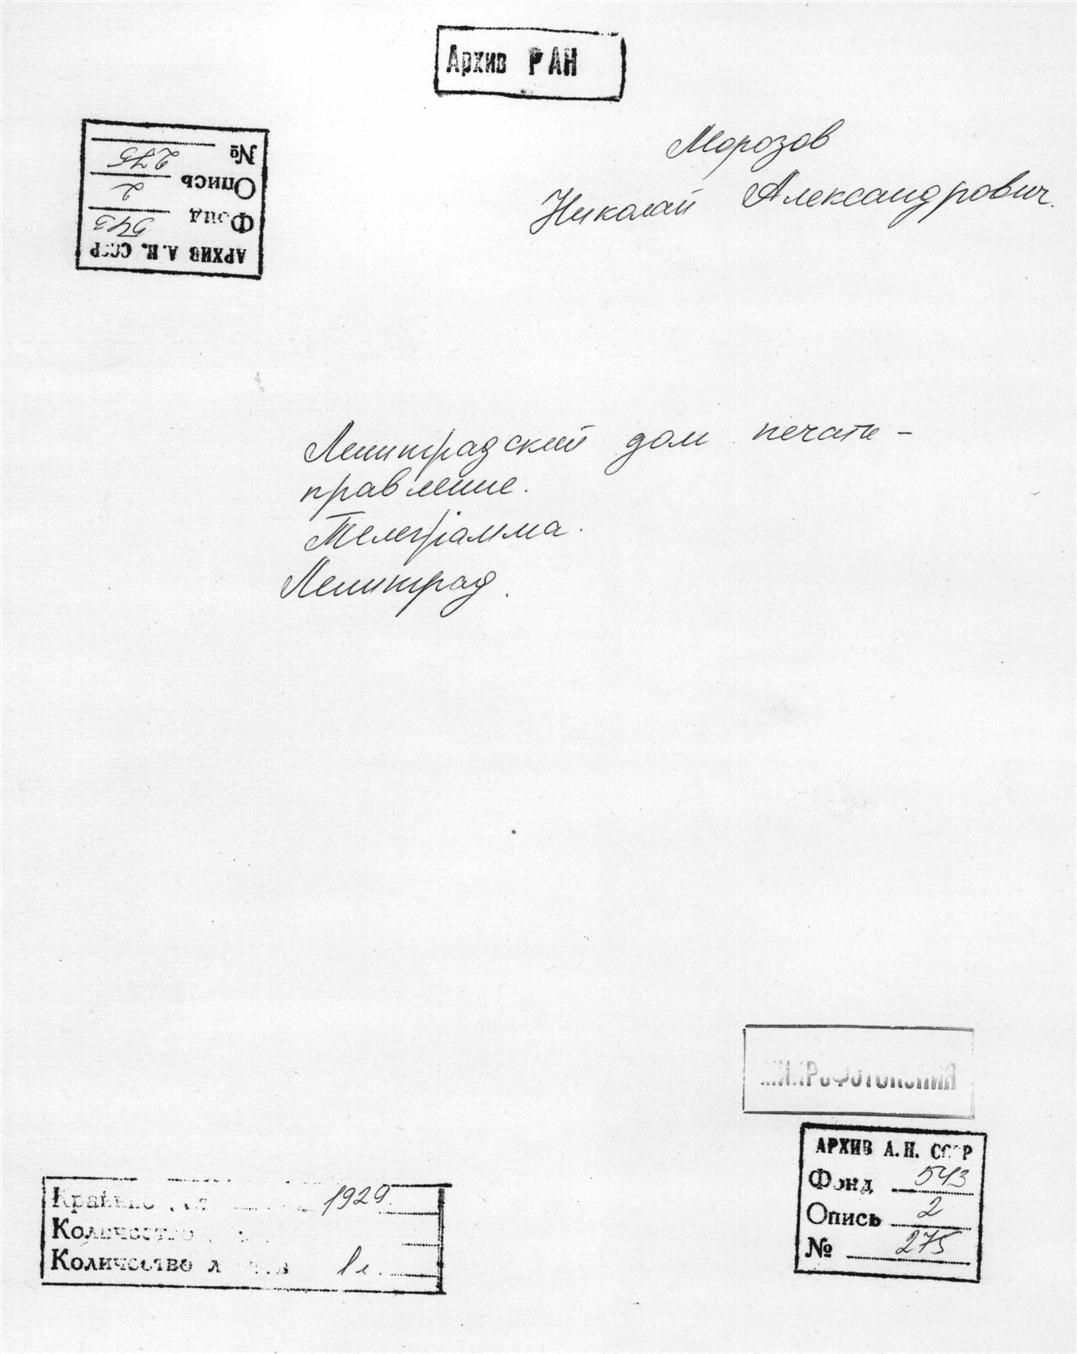 Архив РАН
№ 275
Опись 2
Фонд 543
АРХИВ А.Н. СССР
Морозов
Николай Александрович.
Ленинградский дом печати –
правление.
Телеграмма.
Ленинград.
АРХИВ А.Н. СССР
Фонд 543
Опись 2
№ 275
1929
Количество
Количество 1 л.